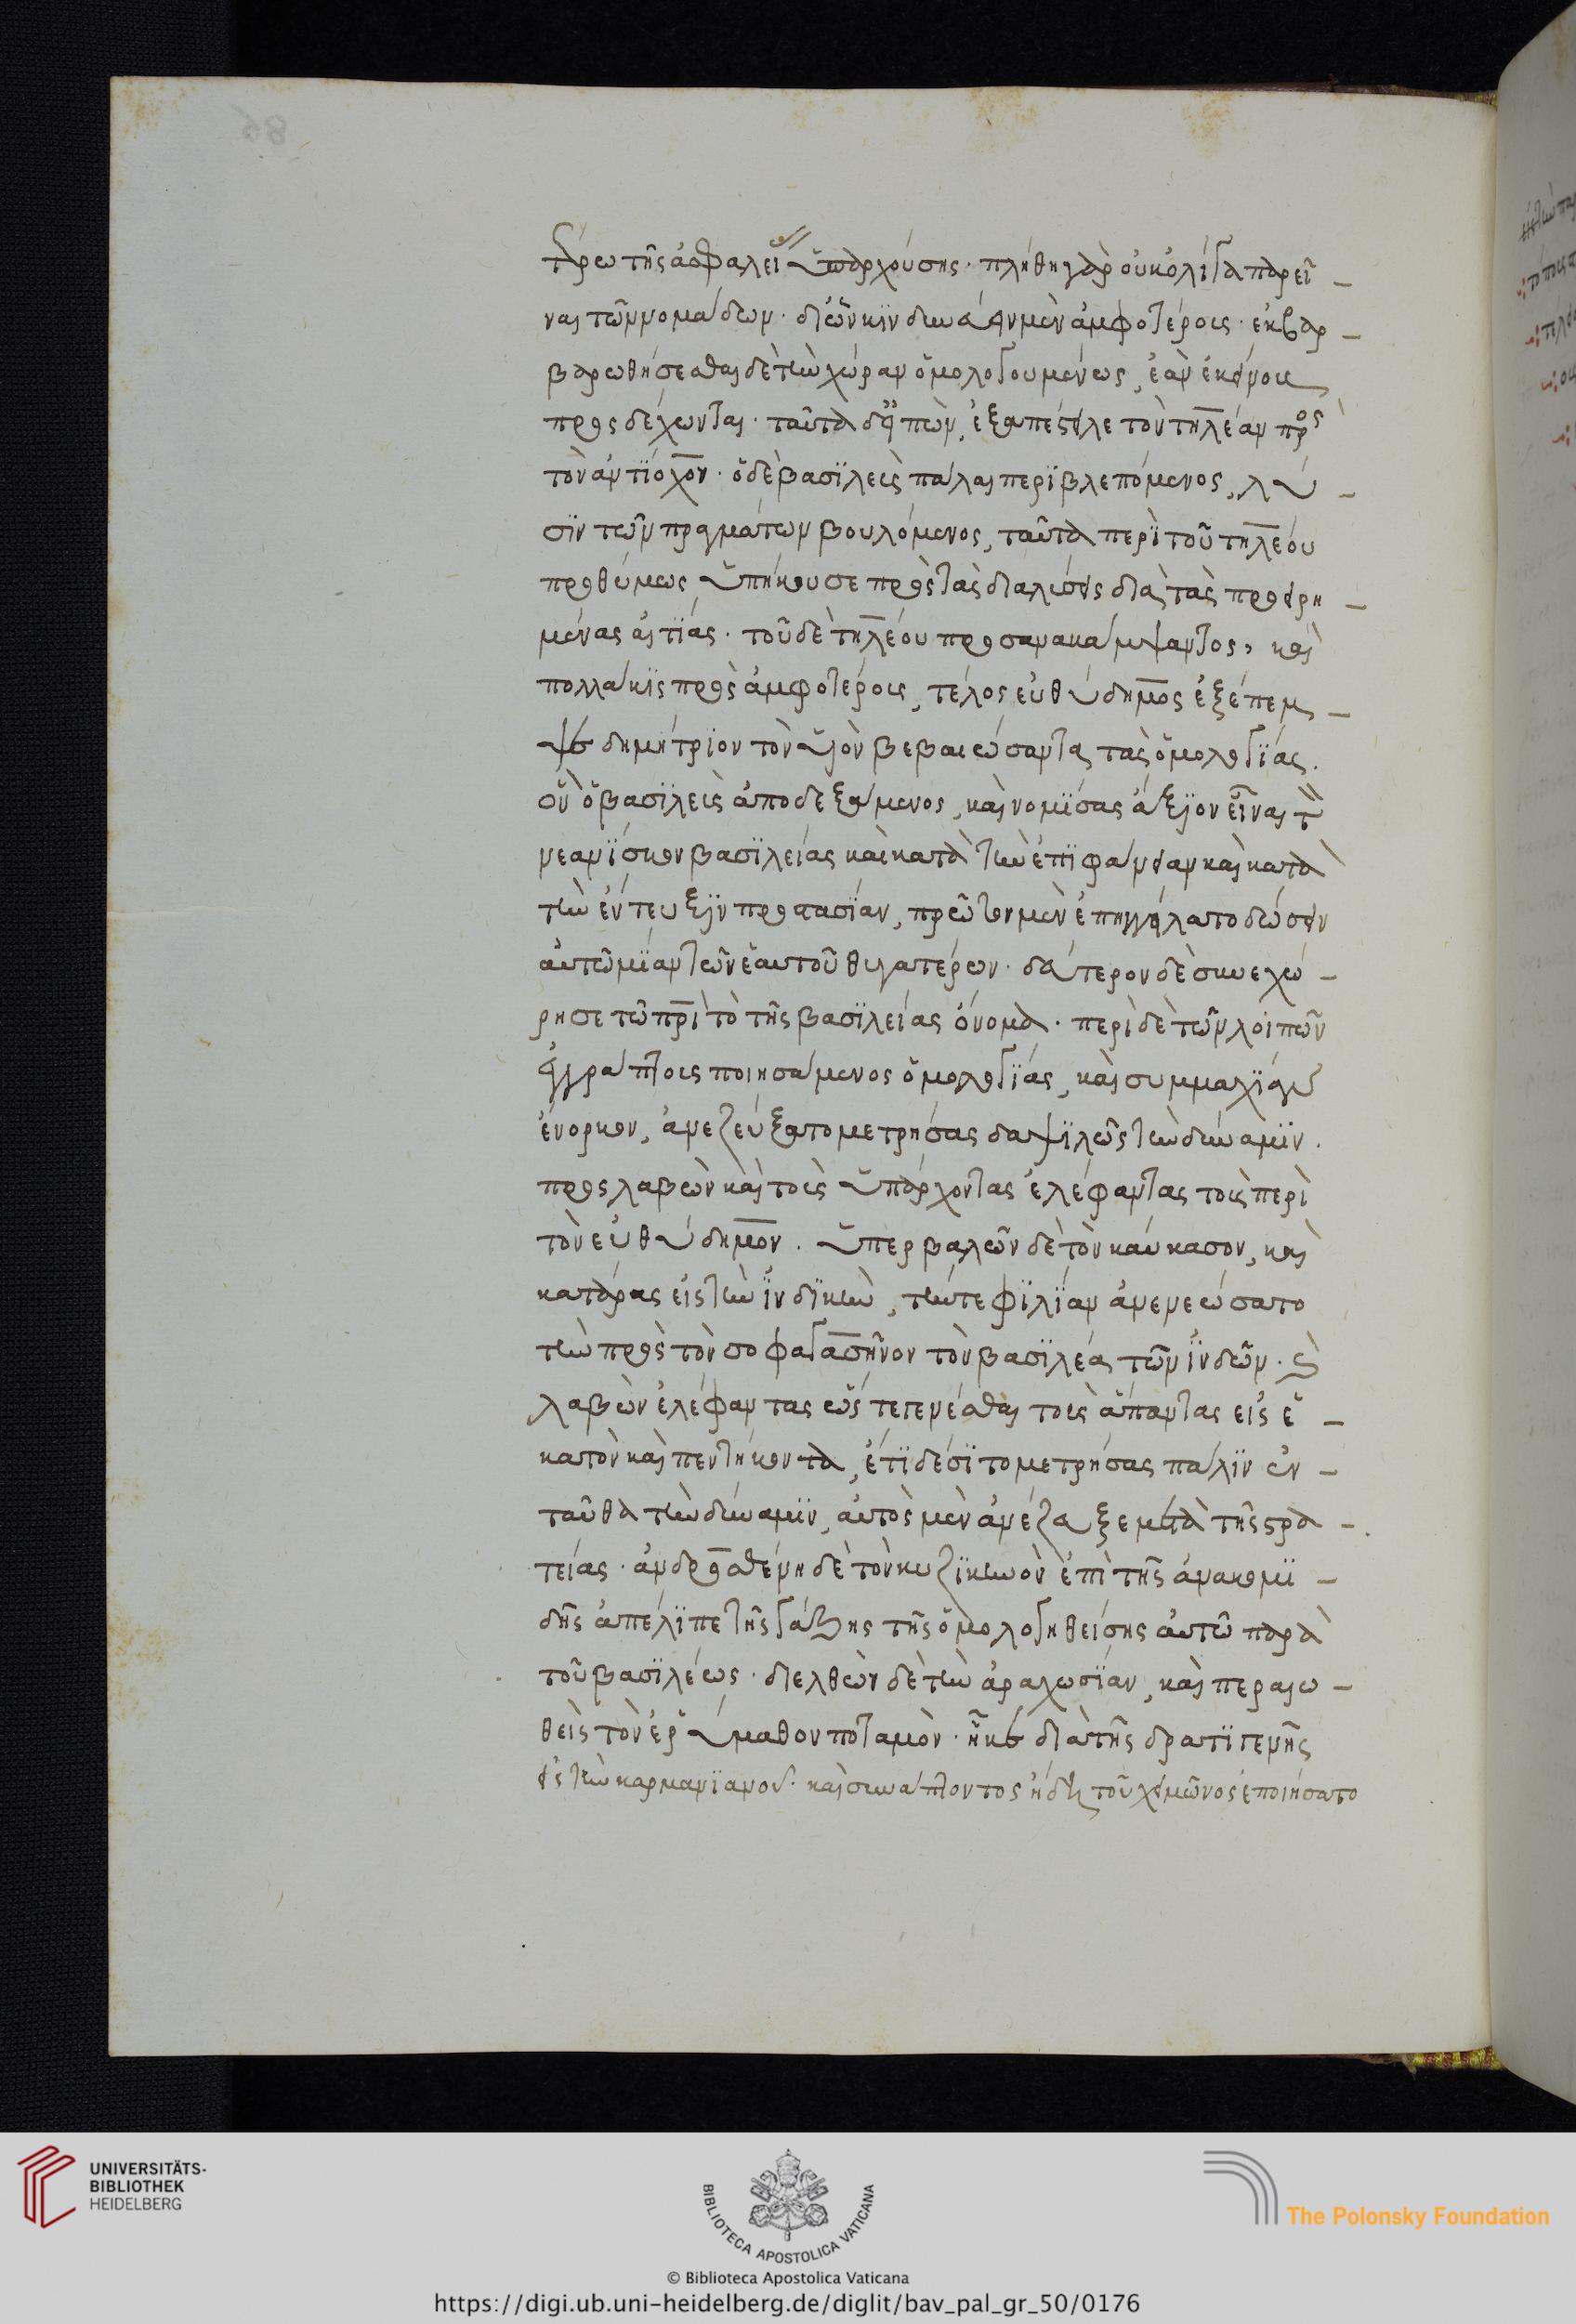 τέρω τῆς ἀσφαλεί ὑπαρχούσης· πλήθη γὰρ οὐκ ὀλίγα παρεῖ–
ναι τῶν νομάδων· δι ὧν κινδυνεύειν μὲν ἀμφοτέρους· ἐκβαρ–
βαρωθήσεσθαι δὲ τὴν χώραν ὁμολογουμένως, ἐὰν ἐκείνους
προσδέχωνται· ταῦτα δ εἰπὼν, ἐξαπέστειλε τὸν τηλέαν πρὸς
τὸν ἀντίοχον· ὁ δὲ βασιλεὺς πάλαι περιβλεπόμενος, λύ–
σιν τῶν πραγμάτων βουλόμενος, ταῦτα περὶ τοῦ τηλέου
προθύμως ὑπήκουσε πρὸς τὰς διαλύσεις διὰ τὰς προειρη–
μένας αἰτίας· τοῦ δὲ τηλέου προσανακάμψαντος, καὶ
πολλάκις πρὸς ἀμφοτέρους, τέλος εὐθύδημος ἐξέπεμ–
ψε δημήτριον τὸν υἱὸν βεβαιώσαντα τὰς ὁμολογίας.
ὃν ὁ βασιλεὺς ἀποδεξάμενος, καὶ νομίσας ἄξιον εἶναι τὸν
νεανίσκον βασιλείας καὶ κατὰ τὴν ἐπιφάνειαν καὶ κατὰ
τὴν ἔντευξιν προστασίαν, πρῶτον μὲν ἐπηγγείλατο δώσειν
αὐτῶ μίαν τῶν ἑαυτοῦ θυγατέρων· δεύτερον δὲ συνεχώ–
ρησε τῶ πρὶ τὸ τῆς βασιλείας ὄνομα· περὶ δὲ τῶν λοιπῶν
ἐγγράπτους ποιησάμενος ὁμολογίας, καὶ συμμαχίαν
ἔνορκον, ἀνέζευξε σιτομετρήσας δαψιλῶς τὴν δύναμιν.
προσλαβὼν καὶ τοὺς ὑπάρχοντας ἐλέφαντας τοῖς περὶ
τὸν εὐθύδημον. ὑπερβαλὼν δὲ τὸν καύκασον, καὶ
κατάρας εἰς τὴν ἰνδικὴν, τήν τε φιλίαν ἀνενεώσατο
τὴν πρὸς τὸν σοφαγασῆνον τὸν βασιλέα τῶν ἰνδῶν· καὶ
λαβὼν ἐλέφαντας ὥστε γενέσθαι τοὺς ἅπαντας εἰς ἑ–
κατὸν καὶ πεντήκοντα, ἔτι δὲ σιτομετρήσας πάλιν ἐν–
ταῦθα τὴν δύναμιν, αὐτὸς μὲν ἀνέζευξε μετὰ τῆς στρα–
τείας· ἀνδροσθένη δὲ τὸν κυζικηνὸν ἐπὶ τῆς ἀνακομι–
δῆς ἀπέλιπε τῆς γάζης τῆς ὁμολογηθείσης αὐτῶ παρὰ
τοῦ βασιλέως· διελθὼν δὲ τὴν ἀραχωσίαν, καὶ περαιω–
θεὶς τὸν ἐρύμαθον ποταμὸν· ἧκε διὰ τῆς δραγγηνῆς
εἰς τὴν καρμανίαν οὗ· καὶ συνάπτοντος ἤδη τοῦ χειμῶνος ἐποιήσατο
UNIVERSITÄTS-
BIBLIOTHEK
HEIDELBERG
BIBLIOTECA APOSTOLICA VATICANA
The Polonsky Foundation
© Biblioteca Apostolica Vaticana
https://digi.ub.uni-heidelberg.de/diglit/bav_pal_gr_50/0176